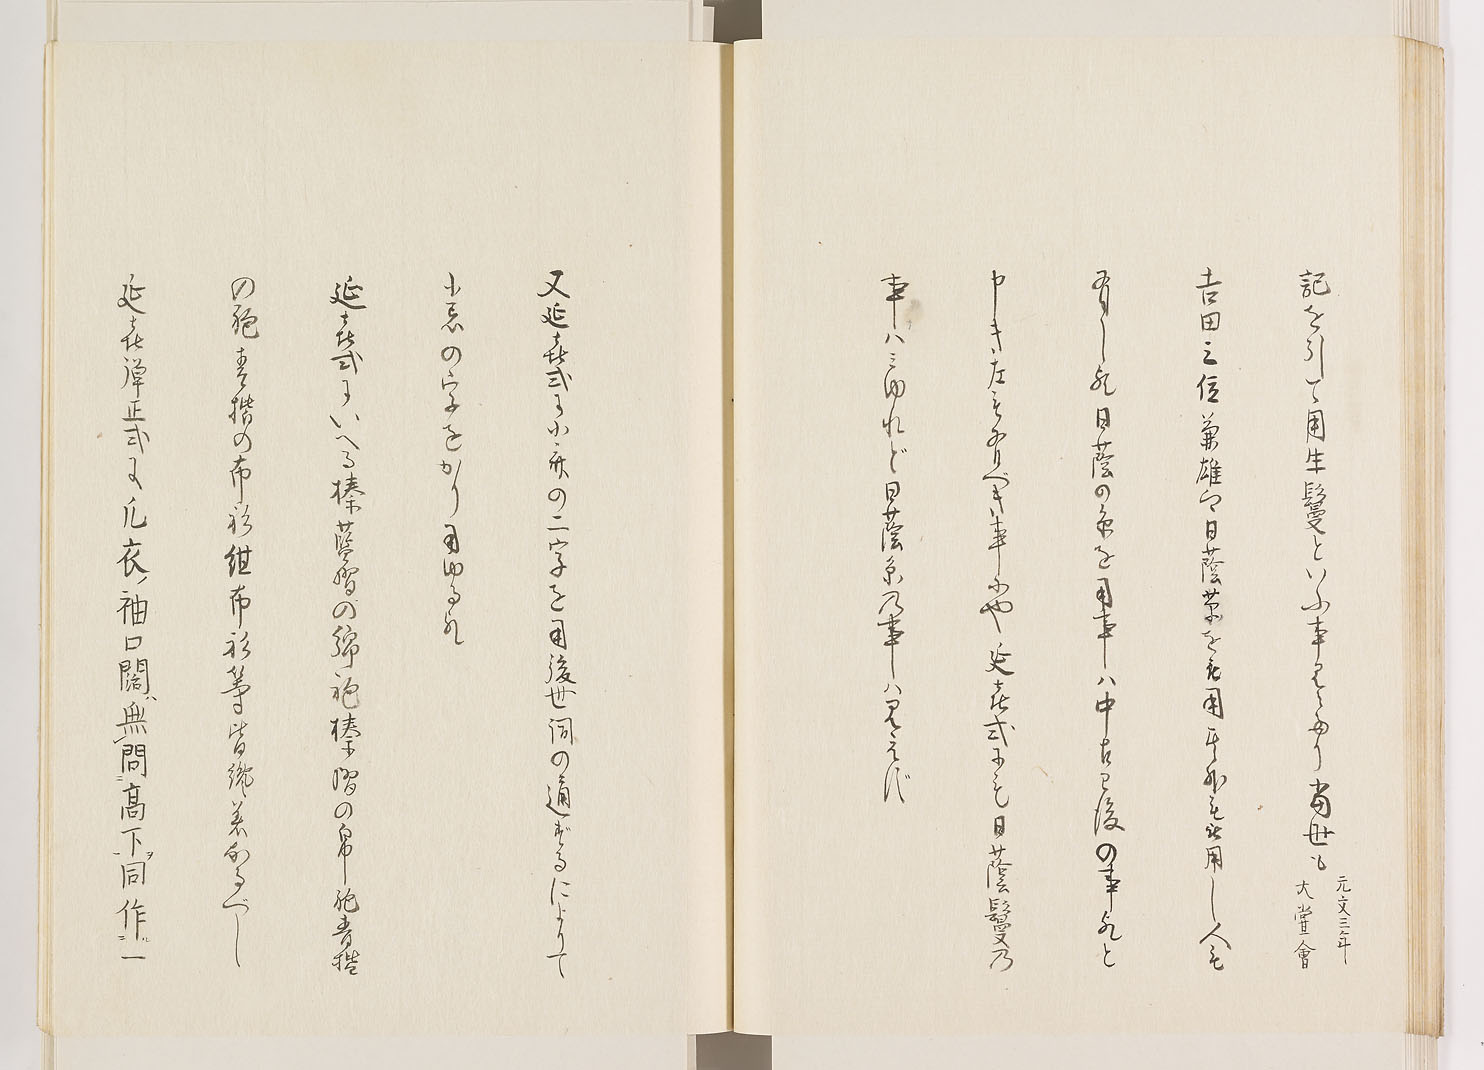 記を引て用生鬘といふ事見へたり当世も
元文三年
大嘗會
吉田三位兼雄卿日蔭蔓を被用其外も被用し人も
有し也日蔭の糸を用事ハ中古已後の事也と
申き左も有べき事にや延喜式にも日蔭鬘乃
事ハミゆれど日蔭糸乃事ハ見えず
又延喜式に小斎の二字を用後世詞の通ずるによりて
小忌の字をかり用ゆる也
延喜式にいへる榛藍摺の綿袍榛摺の帛袍青揩
の袍青揩の布衫紺布衫等皆襖着なるべし
延喜弾正式に凡衣ノ袖口闊ハ無問高下同作